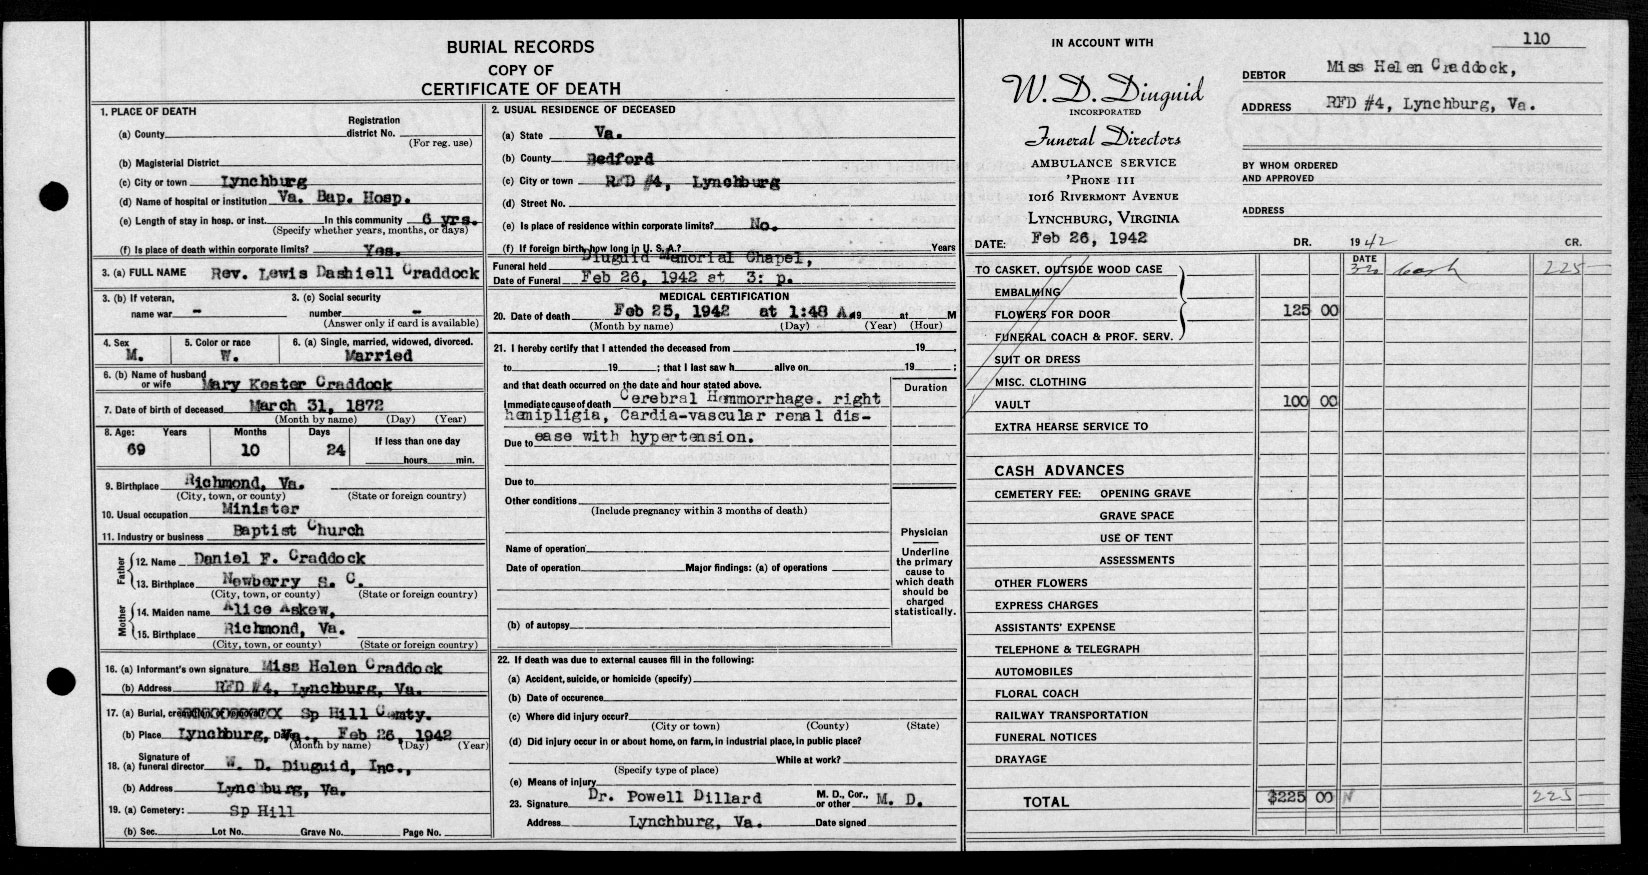 BURIAL RECORDS
COPY OF
CERTIFICATE OF DEATH
1. PLACE OF DEATH
(a) County
Registration district No.
(For reg. use)
(b) Magisterial District
(c) City or town Lynchburg
(d) Name of hospital or institution Va. Bap. Hosp.
(e) Length of stay in hosp. or inst. In this community 6 yrs.
(Specify whether years, months, or days)
(f) Is place of death within corporate limits? Yes.
3. (a) FULL NAME Rev. Lewis Dashiell Craddock
3. (b) If veteran, name war -
3. (c) Social security number -
(Answer only if card is available)
4. Sex M.
5. Color or race W.
6. (a) Single, married, widowed, divorced. Married
6. (b) Name of husband or wife Mary Kester Craddock
7. Date of birth of deceased March 31, 1872
(Month by name) (Day) (Year)
8. Age: Years Months Days If less than one day
69 10 24 hours min.
9. Birthplace Richmond, Va.
(City, town, or county) (State or foreign country)
10. Usual occupation Minister
11. Industry or business Baptist Church
Father
12. Name Daniel F. Craddock
13. Birthplace Newberry S. C.
(City, town, or county) (State or foreign country)
Mother
14. Maiden name Alice Askew,
15. Birthplace Richmond, Va.
(City, town, or county) (State or foreign country)
16. (a) Informant's own signature Miss Helen Craddock
(b) Address RFD #4, Lynchburg, Va.
17. (a) Burial, Sp Hill Cemty.
(b) Place Lynchburg, Va., Feb 26, 1942
(Month by name) (Day) (Year)
18. (a) Signature of funeral director W. D. Diuguid, Inc.,
(b) Address Lynchburg, Va.
19. (a) Cemetery: Sp Hill
(b) Sec. Lot No. Grave No. Page No.
2. USUAL RESIDENCE OF DECEASED
(a) State Va.
(b) County Bedford
(c) City or town RFD #4, Lynchburg
(d) Street No.
(e) Is place of residence within corporate limits? No.
(f) If foreign birth, how long in U. S. A.? Years
Funeral held Diuguid Memorial Chapel,
Date of Funeral Feb 26, 1942 at 3: p.
MEDICAL CERTIFICATION
20. Date of death Feb 25, 1942 at 1:48 A. 19 at M
(Month by name) (Day) (Year) (Hour)
21. I hereby certify that I attended the deceased from 19 ,
to 19 ; that I last saw h alive on 19 ;
and that death occurred on the date and hour stated above.
Duration
Immediate cause of death Cerebral Hemmorrhage. right
hemipligia, Cardia-vascular renal dis-
Due to ease with hypertension.
Due to
Other conditions
(Include pregnancy within 3 months of death)
Physician
Underline the primary cause to which death should be charged statistically.
Name of operation
Date of operation Major findings: (a) of operations
(b) of autopsy
22. If death was due to external causes fill in the following:
(a) Accident, suicide, or homicide (specify)
(b) Date of occurence
(c) Where did injury occur?
(City or town) (County) (State)
(d) Did injury occur in or about home, on farm, in industrial place, in public place?
While at work?
(Specify type of place)
(e) Means of injury
23. Signature Dr. Powell Dillard M. D., Cor., or other M. D.
Address Lynchburg, Va. Date signed
110
IN ACCOUNT WITH
W. D. Diuguid
INCORPORATED
Funeral Directors
AMBULANCE SERVICE
'PHONE 111
1016 RIVERMONT AVENUE
LYNCHBURG, VIRGINIA
DATE: Feb 26, 1942
DEBTOR Miss Helen Craddock,
ADDRESS RFD #4, Lynchburg, Va.
BY WHOM ORDERED AND APPROVED
ADDRESS
DR. 1942 CR.
DATE
TO CASKET, OUTSIDE WOOD CASE cash 225—
EMBALMING
FLOWERS FOR DOOR 125 00
FUNERAL COACH & PROF. SERV.
SUIT OR DRESS
MISC. CLOTHING
VAULT 100 00
EXTRA HEARSE SERVICE TO
CASH ADVANCES
CEMETERY FEE: OPENING GRAVE
GRAVE SPACE
USE OF TENT
ASSESSMENTS
OTHER FLOWERS
EXPRESS CHARGES
ASSISTANTS' EXPENSE
TELEPHONE & TELEGRAPH
AUTOMOBILES
FLORAL COACH
RAILWAY TRANSPORTATION
FUNERAL NOTICES
DRAYAGE
TOTAL $225 00 225—